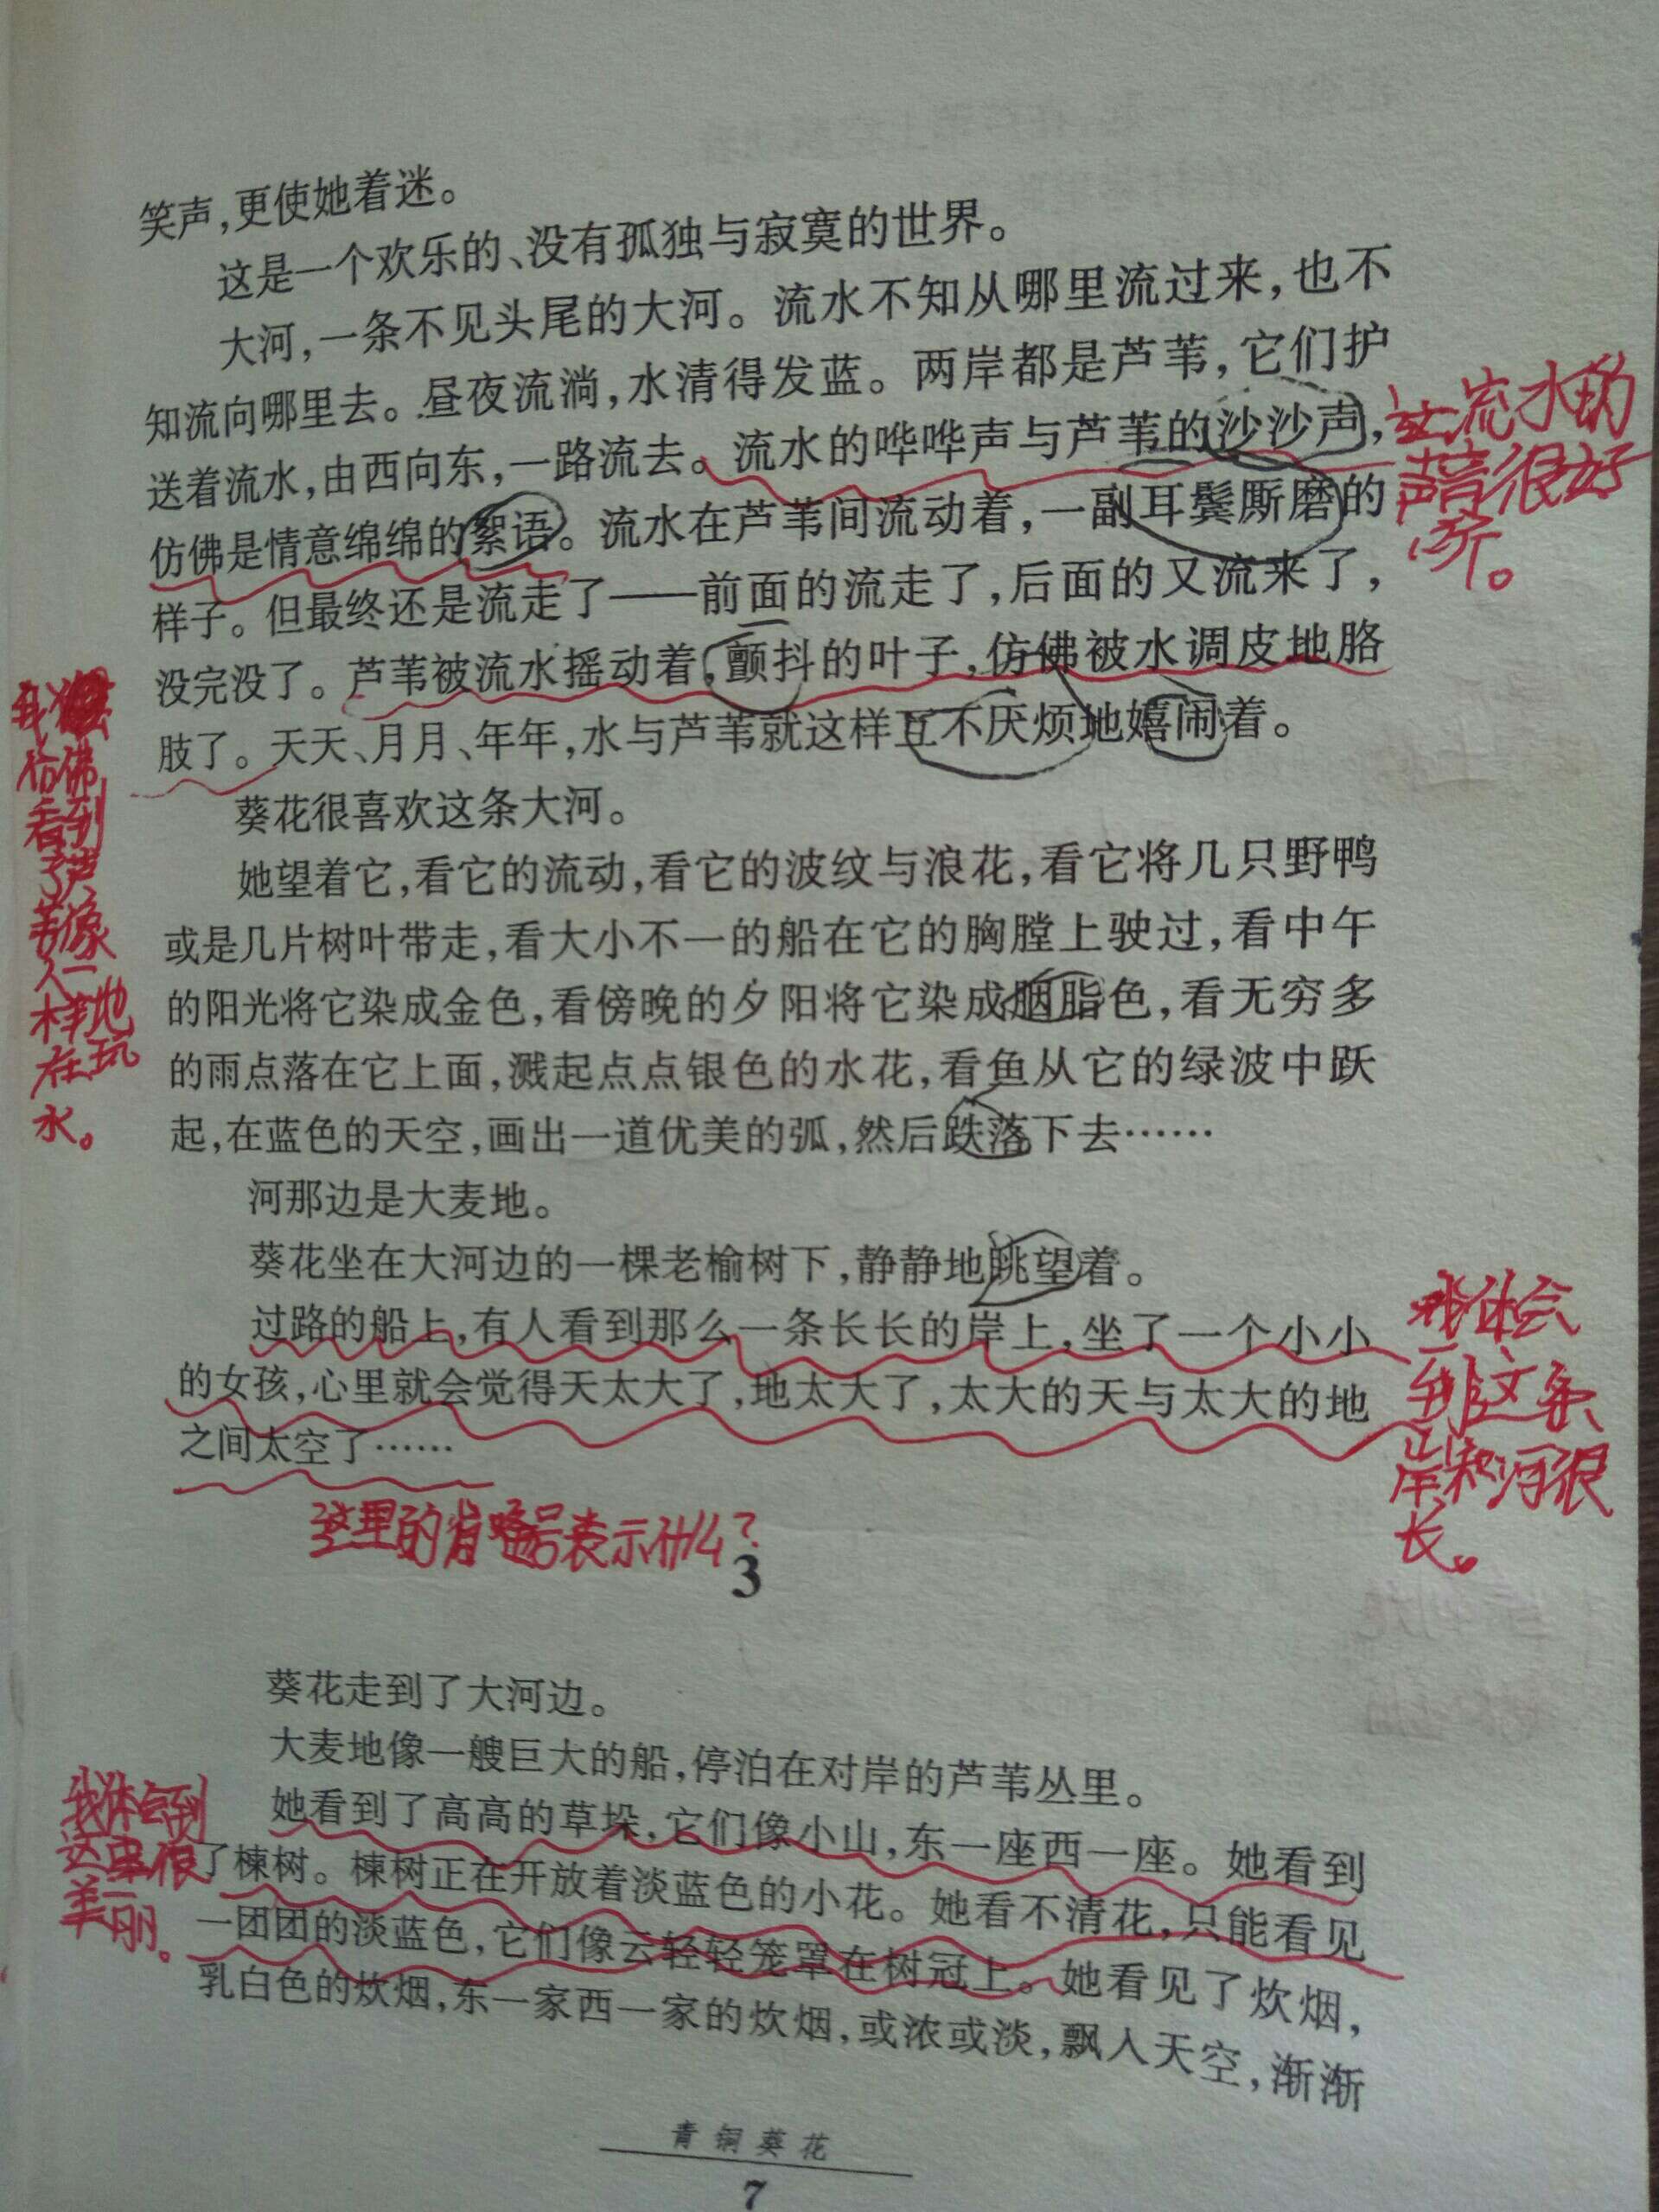 笑声,更使她着迷。
这是一个欢乐的、没有孤独与寂寞的世界。
大河,一条不见头尾的大河。流水不知从哪里流过来,也不
知流向哪里去。昼夜流淌,水清得发蓝。两岸都是芦苇,它们护
送着流水,由西向东,一路流去。流水的哗哗声与芦苇的沙沙声,
仿佛是情意绵绵的絮语。流水在芦苇间流动着,一副耳鬓厮磨的
样子。但最终还是流走了——前面的流走了,后面的又流来了,
没完没了。芦苇被流水摇动着,颤抖的叶子,仿佛被水调皮地胳
肢了。天天、月月、年年,水与芦苇就这样互不厌烦地嬉闹着。
葵花很喜欢这条大河。
她望着它,看它的流动,看它的波纹与浪花,看它将几只野鸭
或是几片树叶带走,看大小不一的船在它的胸膛上驶过,看中午
的阳光将它染成金色,看傍晚的夕阳将它染成胭脂色,看无穷多
的雨点落在它上面,溅起点点银色的水花,看鱼从它的绿波中跃
起,在蓝色的天空,画出一道优美的弧,然后跌落下去……
河那边是大麦地。
葵花坐在大河边的一棵老榆树下,静静地眺望着。
过路的船上,有人看到那么一条长长的岸上,坐了一个小小
的女孩,心里就会觉得天太大了,地太大了,太大的天与太大的地
之间太空了……
这里的省略号表示什么?
3
葵花走到了大河边。
大麦地像一艘巨大的船,停泊在对岸的芦苇丛里。
她看到了高高的草垛,它们像小山,东一座西一座。她看到
了楝树。楝树正在开放着淡蓝色的小花。她看不清花,只能看见
一团团的淡蓝色,它们像云轻轻笼罩在树冠上。她看见了炊烟,
乳白色的炊烟,东一家西一家的炊烟,或浓或淡,飘入天空,渐渐
青铜葵花
7
流水的
声音很好
听。
我
仿佛
看到
了芦
苇像
人一
样地
在玩
水。
我体会
到这条
岸和河很
长。
我体会到
这里很
美丽。